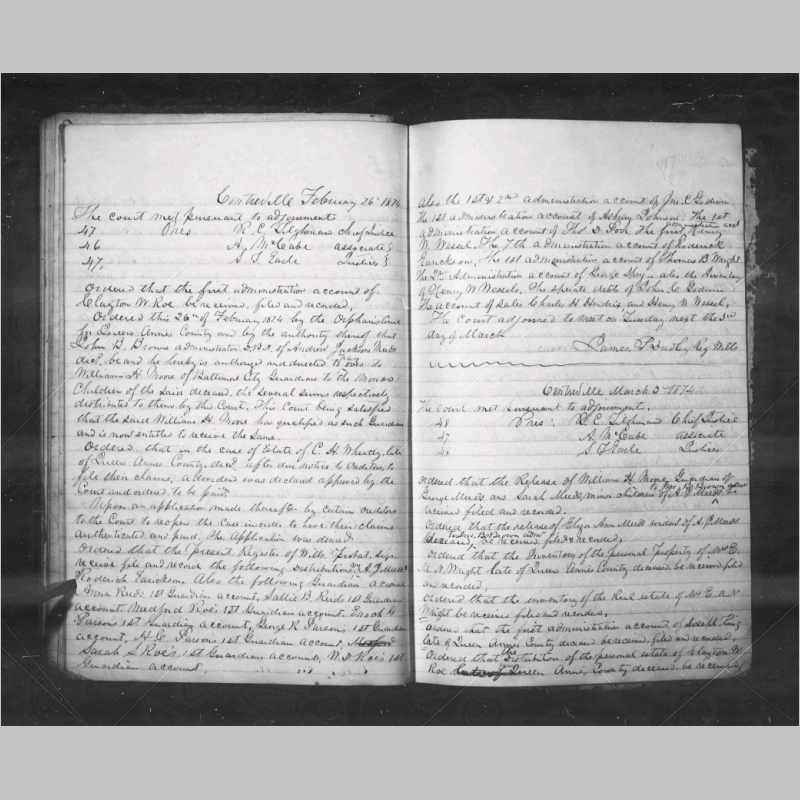 Centreville February 26th 1874
The court met pursuant to adjournment
47 Pres R. C. Tilghman Chief Justice
46 A. McCabe associate
47. S. T. Earle Justices
Ordered that the first administration account of
Clayton W. Roe be received, filed and recorded,
Ordered this 26th of February 1874 by the Orphans Court
for Queen Annes County and by the authority thereof that
John B. Brown administrator D.B.N. of Andrew Jackson Meeds
decd, be and he hereby is authorized and directed to pay to
William H. Moore of Baltimore City Guardian to the
Children of the said deceased, the several sums respectively
distributed to them by this Court. This Court being satisfied
that the said William H. Moore has qualified as such Guardian
and is now entitled to receive the same.
Ordered, that in the case of Estate of C. H. late
of Queen Annes County decd, after due notice to creditors to
file their claims, a dividend was declared approved by the
Court and ordered to be paid
Upon an application made thereof by certain creditors
to the Court to reopen the case in order to have their claims
authenticated and passed, the application was denied.
Ordered that the present Register of Wills
receive file and record the following distributions, A. J. Meeds
Roderick Earickson. Also the following Guardian accounts
Reeds 1st Guardian account, Sallie B. Reeds 1st Guardian
account, Medford Roe's 1st Guardian account, Enoch G.
Parsons 1st Guardian account, George R. Parsons 1st Guardian
account, H. C. Parsons 1st Guardian account, Medford
Sarah S. Roe's 1st Guardian account, W. D. Roe's 1st
Guardian account.
Also the 1st & 2nd administration account of Jno. C. Godwin
The 1st administration account of Asbury Johnson. The 1st
administration account of Thos. D. The first Henry
W. Wessel, The 7th administration account of Roderick
Earickson, The 1st administration account of Thomas B. Wright
The 2nd Administration account of George also the Inventory
of Henry W. Wessels. The sperate debts of John C. Godwin
The account of sales Charles H. and Henry W. Wessel,
The Court adjourned to meet on Tuesday next the 3rd
day of March
James Reg Wills
Centreville March 3rd 1874
The court met pursuant to adjournment,
48 Pres. R. C. Tilghman Chief Justice
47 A. McCabe associate
S. T. Earle Justices
Ordered that the Release of William H. Moore Guardian of
George Meeds and Sarah Meeds, minor children of A. J. Meeds to Jno. B. Brown be
received filed and recorded.
Ordered that the release of Eliza Ann Meeds widow of A. J. Meeds
deceased, to Jno. B. Brown adm be received filed & recorded,
Ordered that the Inventory of the personal Property of Mrs E.
A. N. Wright late of Queen Annes County deceased be received filed
and recorded,
Ordered that the inventory of the Real estate of Mrs E. A. N.
Wright be received filed and recorded,
Ordered that the first administration account of Joseph
late of Queen Annes County deceased be received, filed and recorded,
Ordered that the Distribution of the personal estate of Clayton W.
Roe late of Queen Annes County deceased be received